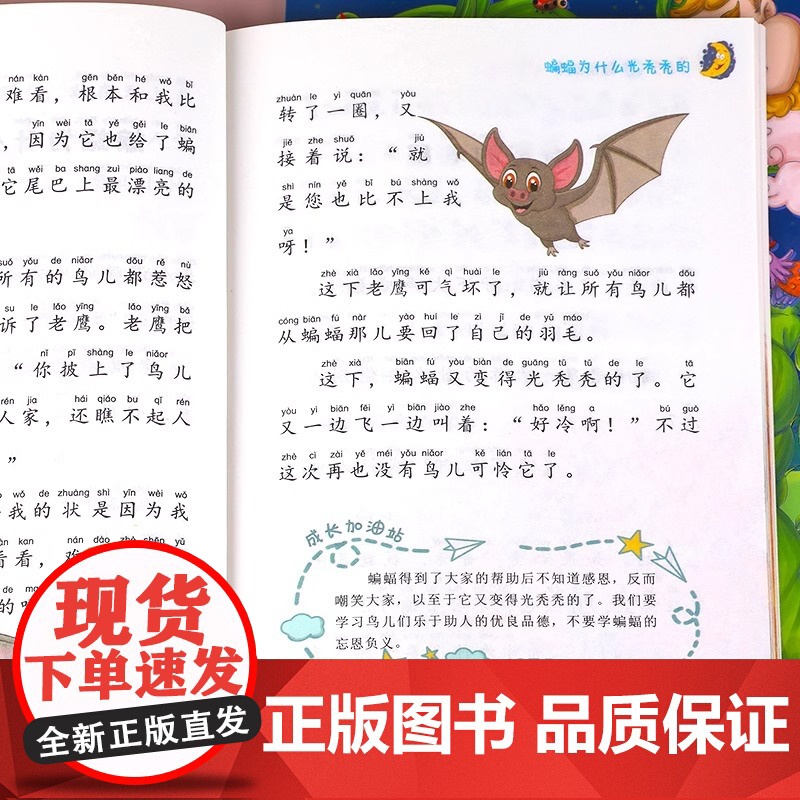 nán kàn gēn běn hé wǒ bǐ
难看，根本和我比
yīn wèi tā yě gěi le biān
，因为它也给了蝙
tā wěi ba shang zuì piào liang de
它尾巴上最漂亮的
suǒ yǒu de niǎor dōu rě nù
所有的鸟儿都惹怒
su le lǎo yīng lǎo yīng bǎ
诉了老鹰。老鹰把
nǐ pī shàng le niǎor
“你披上了鸟儿
rén jia hái qiáo bu qǐ rén
人家，还瞧不起人
”
wǒ de zhuàng shì yīn wèi wǒ
我的状是因为我
kàn kan nán dào zhè shēn yǔ
看看，难
de ma
的吗
蝙蝠为什么光秃秃的
zhuàn le yì quān yòu
转了一圈，又
jiē zhe shuō jiù
接着说：“就
shì nín yě bǐ bú shàng wǒ
是您也比不上我
ya
呀！”
zhè xià lǎo yīng kě qì huài le jiù ràng suǒ yǒu niǎor dōu
这下老鹰可气坏了，就让所有鸟儿都
cóng biān fú nàr yào huí le zì jǐ de yǔ máo
从蝙蝠那儿要回了自己的羽毛。
zhè xià biān fú yòu biàn de guāng tū tū de le tā
这下，蝙蝠又变得光秃秃的了。它
yòu yì biān fēi yì biān jiào zhe hǎo lěng a bú guò
又一边飞一边叫着：“好冷啊！”不过
zhè cì zài yě méi yǒu niǎor kě lián tā le
这次再也没有鸟儿可怜它了。
成长加油站
蝙蝠得到了大家的帮助后不知道感恩，反而
嘲笑大家，以至于它又变得光秃秃的了。我们要
学习鸟儿们乐于助人的优良品德，不要学蝙蝠的
忘恩负义。
现货
下单速发
全新正版直发
正版图书 品质保证